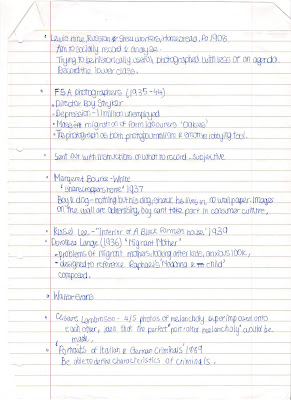 • Lewis Hine, Russian & Steel workers, Homestead, Pa 1908
Aim to socially record & analyse.
Trying to be historically useful, photographed with less of an agenda.
Record the lower class.
• FSA photographers (1935-44)
• Director Roy Stryker
• Depression - 11 million unemployed
• Mass migration of farm labourers 'Oakies'
• The photograph as both photojournalism & emotive lobbying tool.
• Sent out with instructions on what to record - subjective
• Margaret Bourke-White
'Sharecroppers home' 1937
Boy & dog - nothing but his dog, shack he lives in, no wall paper. Images
on the wall are advertising, boy cant take part in consumer culture.
• Russell Lee - "Interior of A Black Farmers house' 1939
• Dorothea Lange (1936) 'Migrant Mother'
- problems of migrant mothers looking after kids, anxious look,
- designed to reference Raphael's 'Madonna & child'
composed.
• Walker Evans
• Cesare Lombroso - 4/5 photos of melancholy superimposed onto
each other, idea that the perfect 'portrait of melancholy' could be
made.
• 'Portraits of Italian & German Criminals' 1889
Be able to define characteristics of criminals.